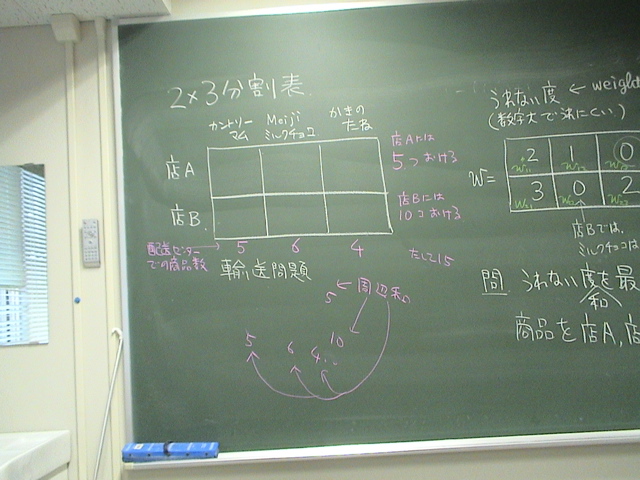 2×3分割表
カントリー
マム
Meiji
ミルクチョコ
かきの
たね
店A
店B
店Aには
5つおける
店Bには
10コおける
配送センター
での商品数
5 6 4
たして15
輸送問題
5 ← 周辺和
10
5 6 4
うれない度 ← weight
(数字大で売れにくい)
W=
2 1 0
3 0 2
店Bでは、
ミルクチョコは
問. うれない度を最
和
商品を店A,店